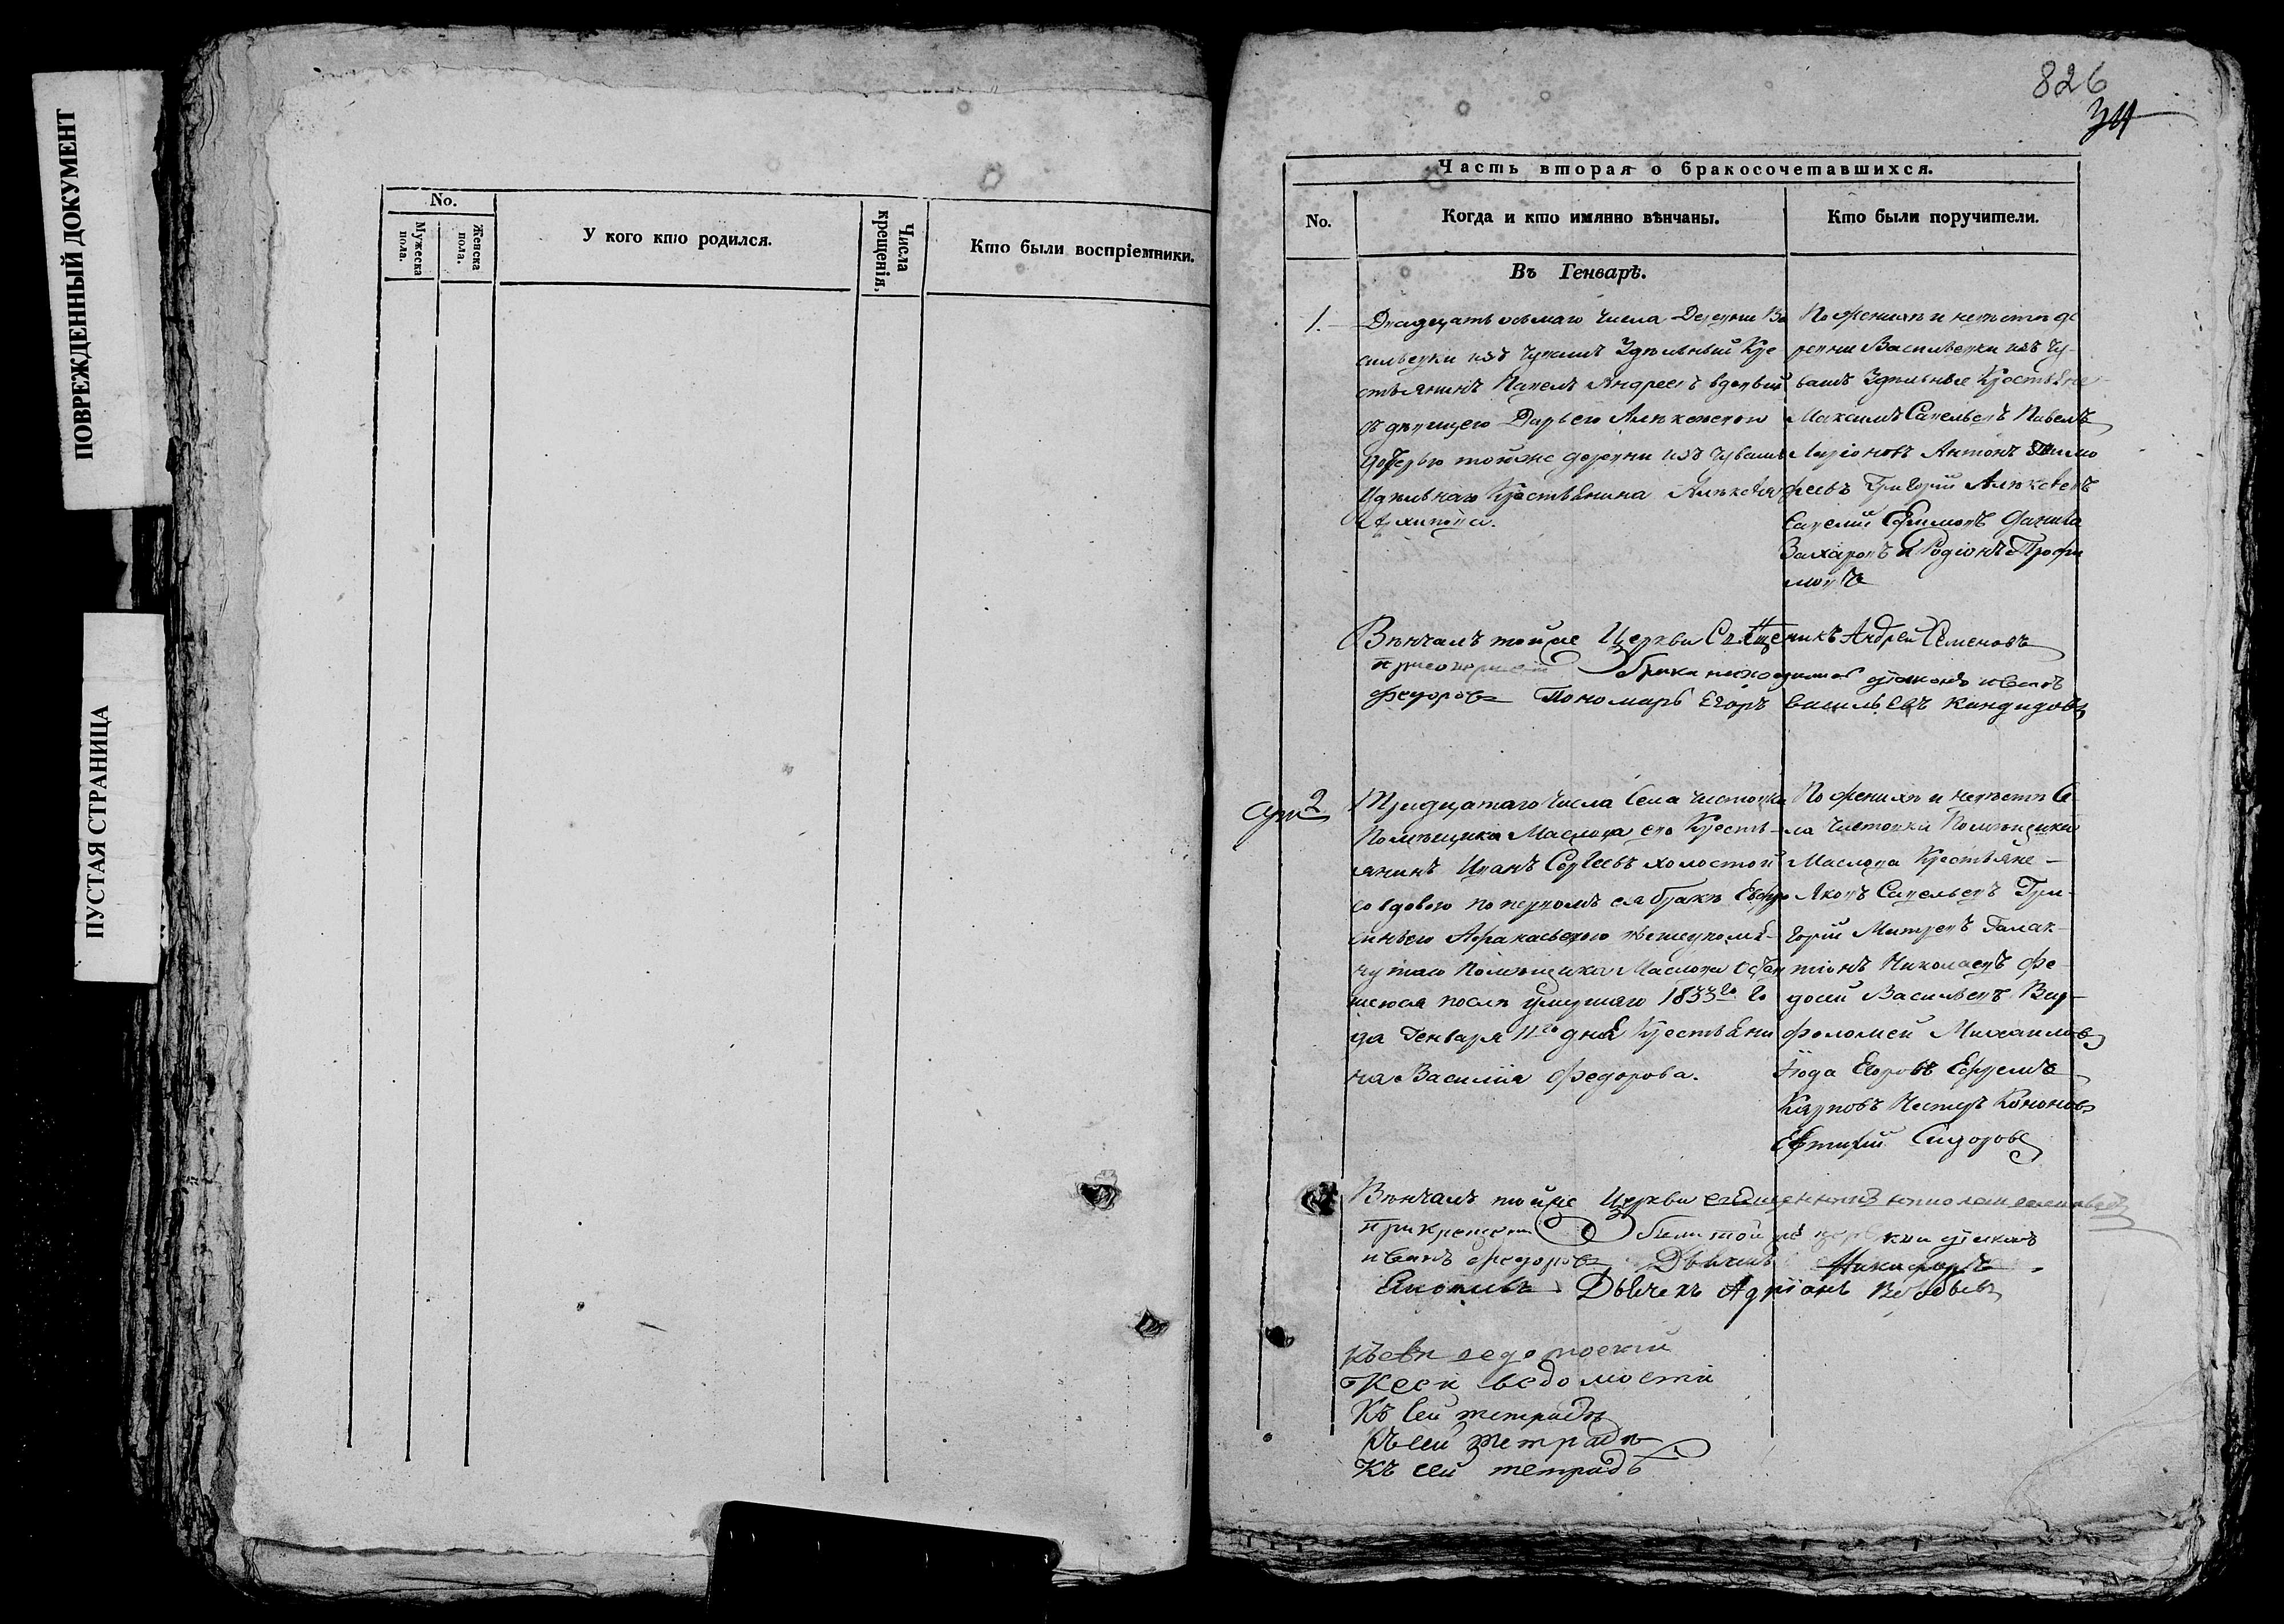 ПОВРЕЖДЕННЫЙ ДОКУМЕНТ
ПУСТАЯ СТРАНИЦА
No.
Мужеска пола.
Женска пола.
У кого кто родился.
Числа крещенія,
Кто были воспріемники.
826
Часть вторая о бракосочетавшихся.
No.
Когда и кто имянно вѣнчаны.
Кто были поручители.
Въ Генварѣ.
1.
Двадцать осьмаго числа Деревни Ва
сильевки изъ чувашъ Удѣльный Кре
стьянинъ Павелъ Андреевъ вдовый
съ девицею Дарьею Алѣксѣевою
дочерью тойже деревни изъ чувашъ
Удѣльнаго Крестьянина Алѣксѣя
Архипова.
По женихѣ и невѣстѣ де
ревни Васильевки изъ чу-
вашъ Удѣльные Крестьяне
Максимъ Савельевъ Павелъ
Ларіоновъ Антонъ Тимо
феевъ Григорій Алѣксѣевъ
Евсевій Ефимовъ Данила
Захаровъ и Родіонъ Трофи
мовъ
Вѣнчалъ тойже Церкви Священикъ Андрей Семеновъ
брака находился діаконъ иванъ
федоровъ Пономарь Егоръ васильевъ кандидовъ
2
Тридцатаго числа Села Чистовки
Помѣщика Маслова его Кресть-
янинъ Иванъ Сергеевъ холостой
со вдовою по первомъ ея бракѣ Евфро
синьею Афанасьевою
Помѣщика Маслова остав
шеюся послѣ умершаго 1833го го
да Генваря 11го дня Крестьяни
на Василія Федорова.
По женихѣ и невѣстѣ Се
ла Чистовки Помѣщика
Маслова Крестьяне-
Яковъ Савельевъ Гри-
горій Митревъ Галак-
тіонъ Николаевъ Фе-
досій Васильевъ Вар-
фоломей Михаиловъ
Іюда Егоровъ Ефремъ
Карповъ Нестеръ Кононовъ
Евтифій Сидоровъ
Вѣнчалъ тойже Церкви
діаконъ
иванъ федоровъ Дьячекъ
Дьячекъ Адріанъ
Ксей ведомости
Къ сей тетрадѣ
Къ сей тетрадѣ
Къ сей тетрадѣ